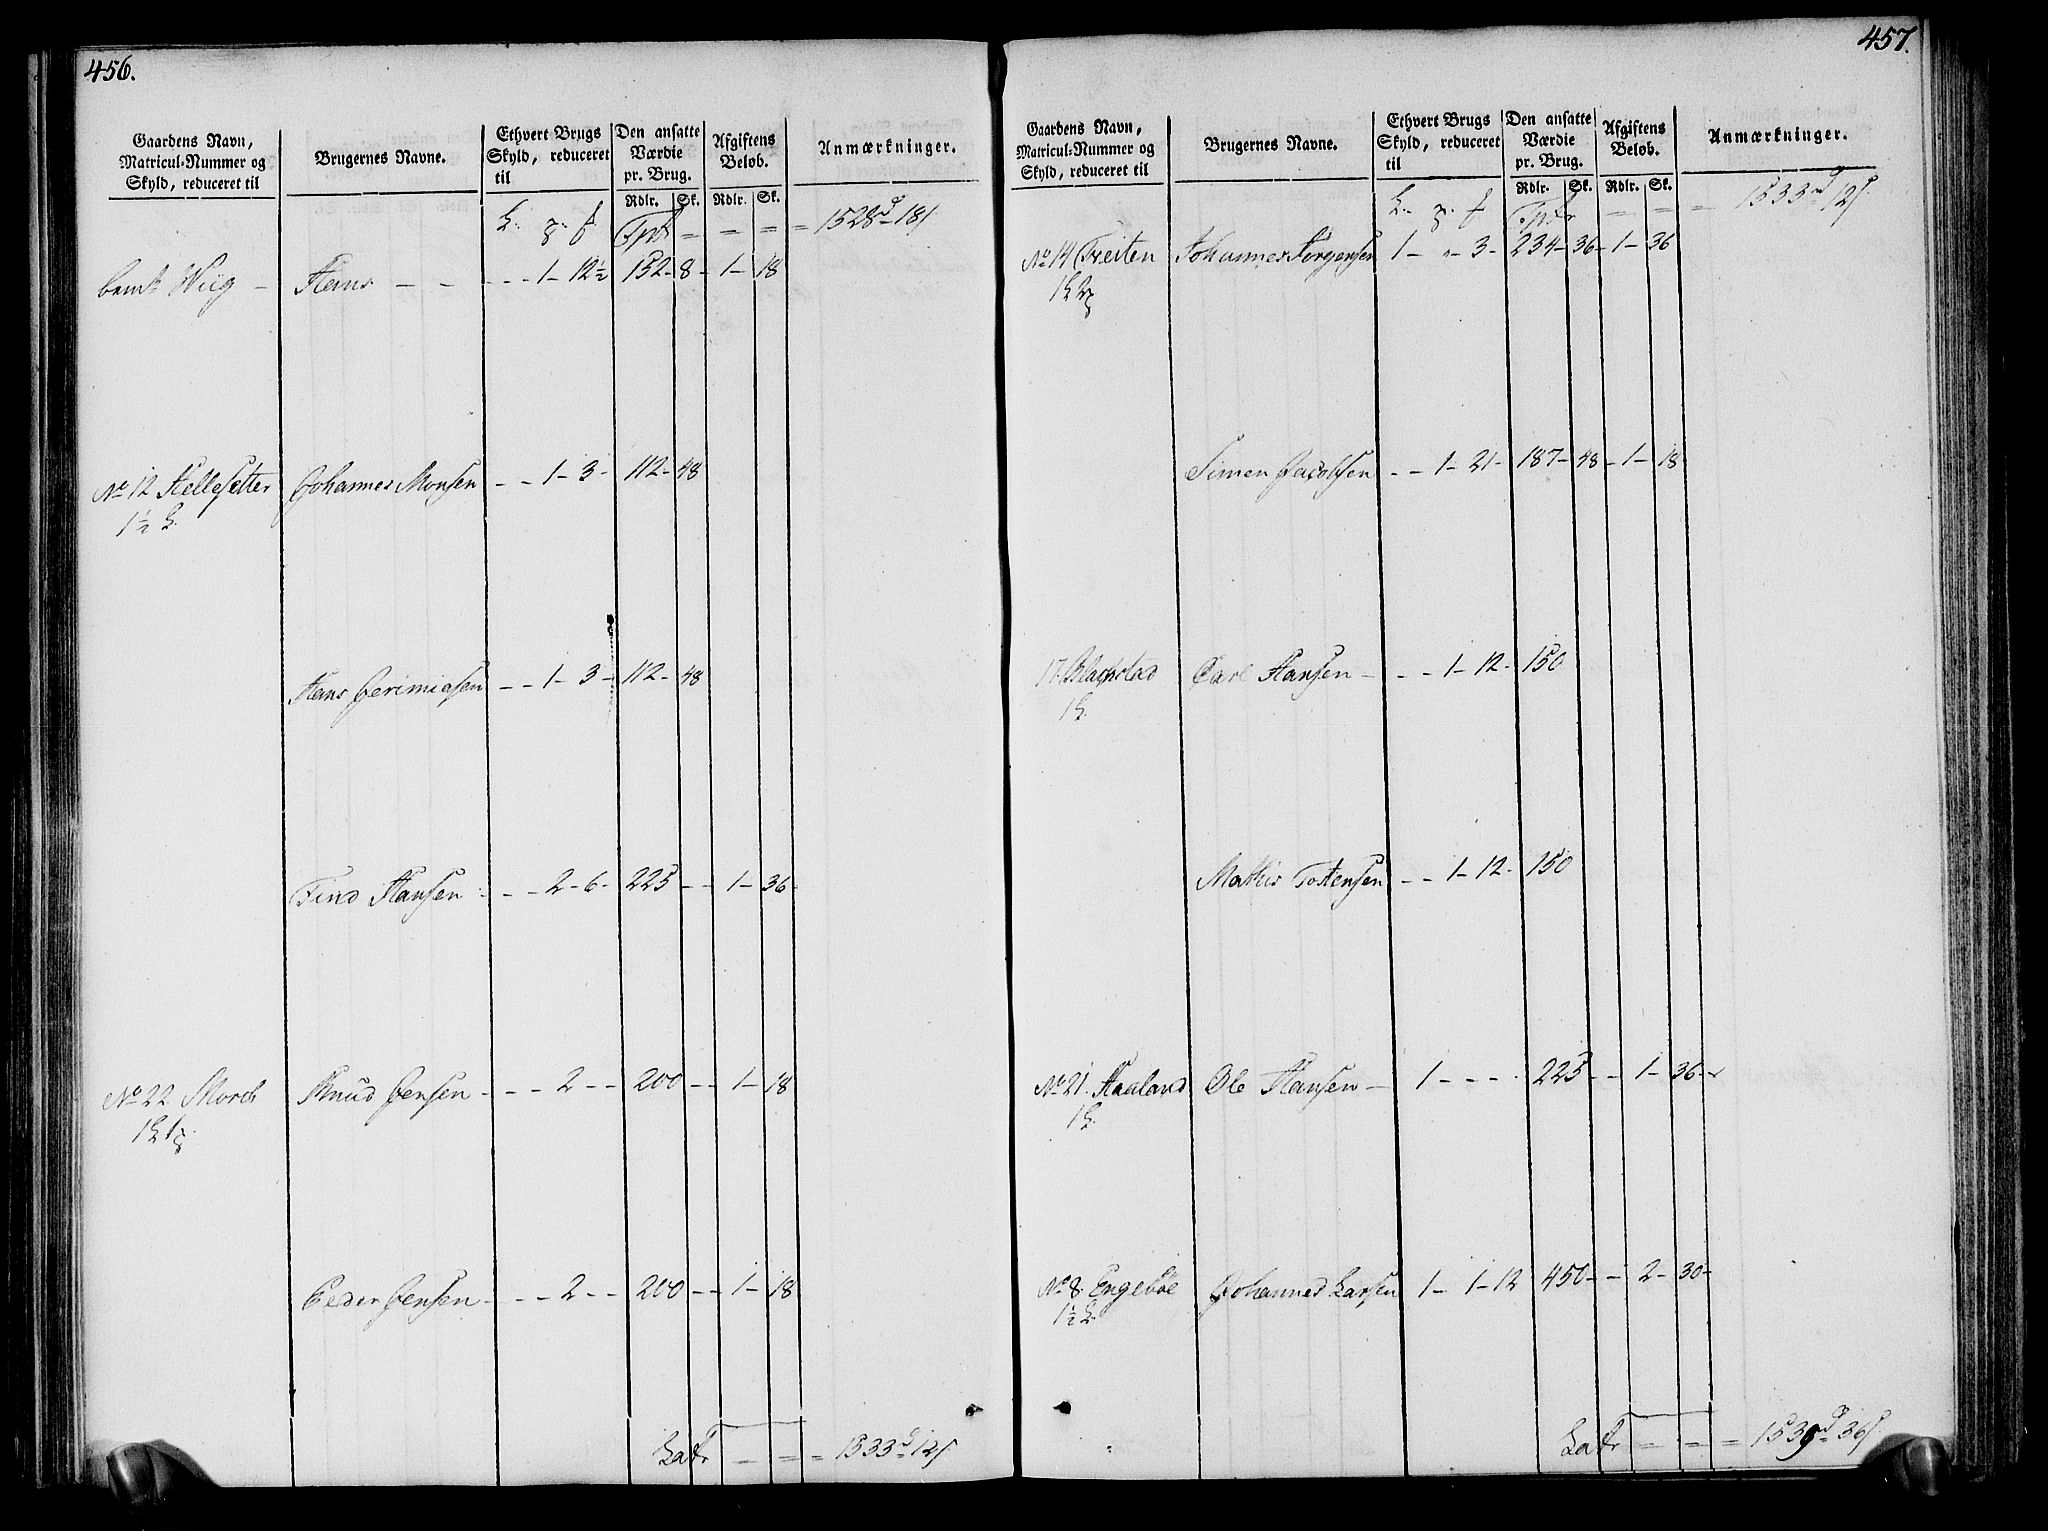 456.
Gaardens Navn, Matricul-Nummer og Skyld, reduceret til | Brugernes Navne. | Ethvert Brugs Skyld, reduceret til | Den ansatte Værdie pr. Brug. | Afgiftens Beløb. | Anmærkninger.
Rdlr. Sk. Rdlr. Sk.
1528 18
Wiig Hans 1 12½ 152 8 1 18
No 12 Hellesetter Johannes Monsen 1 3 112 48
1½
Hans Jerimiasen 1 3 112 48
Find Hansen 2 6 225 1 36
No 22 Morch Knud Jensen 2 200 1 18
Peder Jensen 2 200 1 18
Latr 1533 12
457.
Gaardens Navn, Matricul-Nummer og Skyld, reduceret til | Brugernes Navne. | Ethvert Brugs Skyld, reduceret til | Den ansatte Værdie pr. Brug. | Afgiftens Beløb. | Anmærkninger.
Rdlr. Sk. Rdlr. Sk.
1533 12
No 14 Treiten Johannes Jørgensen 1 " 3 234 36 1 36
Simen Jacobsen 1 21 187 48 1 18
17 Carl Hansen 1 12 150
Mathis Tostensen 1 12 150
No 21. Haaland Ole Hansen 1 225 1 36
No 8. Engebøe Johannes Larsen 1 1 12 450 2 30
1½
Latr 1539 36